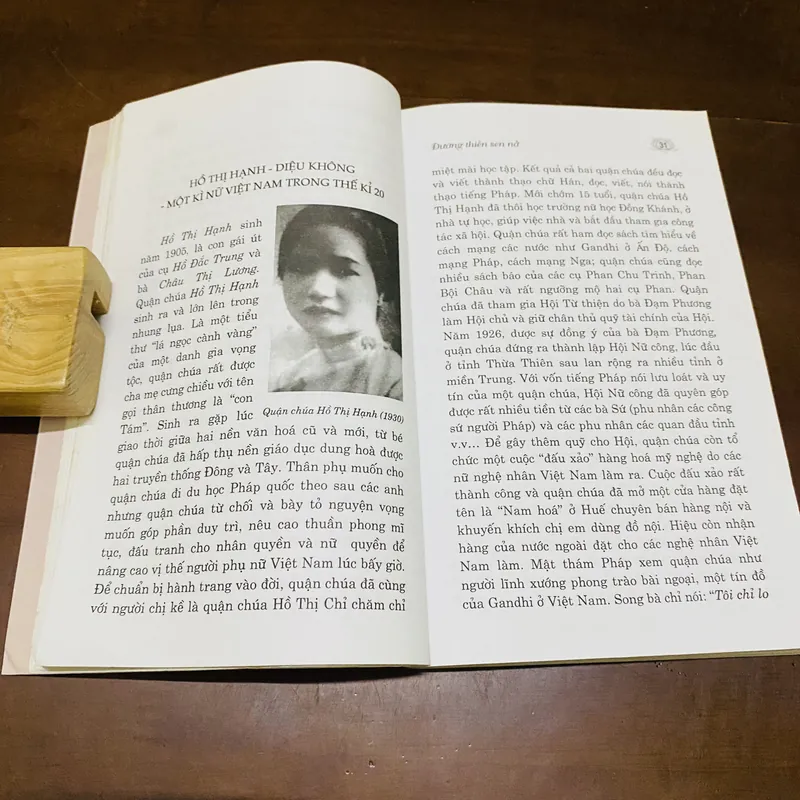 HỒ THỊ HẠNH - DIỆU KHÔNG
- MỘT KÌ NỮ VIỆT NAM TRONG THẾ KỈ 20
Hồ Thị Hạnh sinh
năm 1905, là con gái út
của cụ Hồ Đắc Trung và
bà Châu Thị Lương.
Quận chúa Hồ Thị Hạnh
sinh ra và lớn lên trong
nhung lụa. Là một tiểu
thư "lá ngọc cành vàng"
của một danh gia vọng
tộc, quận chúa rất được
cha mẹ cưng chiều với tên
gọi thân thương là "con
Tám". Sinh ra gặp lúc
Quận chúa Hồ Thị Hạnh (1930)
giao thời giữa hai nền văn hoá cũ và mới, từ bé
quận chúa đã hấp thụ nền giáo dục dung hoà được
hai truyền thống Đông và Tây. Thân phụ muốn cho
quận chúa đi du học Pháp quốc theo sau các anh
nhưng quận chúa từ chối và bày tỏ nguyện vọng
muốn góp phần duy trì, nêu cao thuần phong mĩ
tục, đấu tranh cho nhân quyền và nữ quyền để
nâng cao vị thế người phụ nữ Việt Nam lúc bấy giờ.
Để chuẩn bị hành trang vào đời, quận chúa đã cùng
với người chị kề là quận chúa Hồ Thị Chỉ chăm chỉ
Đường thiền sen nở
31
miệt mài học tập. Kết quả cả hai quận chúa đều đọc
và viết thành thạo chữ Hán, đọc, viết, nói thành
thạo tiếng Pháp. Mới chớm 15 tuổi, quận chúa Hồ
Thị Hạnh đã thôi học trường nữ học Đồng Khánh, ở
nhà tự học, giúp việc nhà và bắt đầu tham gia công
tác xã hội. Quận chúa rất ham đọc sách tìm hiểu về
cách mạng các nước như Gandhi ở Ấn Độ, cách
mạng Pháp, cách mạng Nga; quận chúa cũng đọc
nhiều sách báo của các cụ Phan Chu Trinh, Phan
Bội Châu và rất ngưỡng mộ hai cụ Phan. Quận
chúa đã tham gia Hội Từ thiện do bà Đạm Phương
làm Hội chủ và giữ chân thủ quỹ tài chính của Hội.
Năm 1926, được sự đồng ý của bà Đạm Phương,
quận chúa đứng ra thành lập Hội Nữ công, lúc đầu
ở tỉnh Thừa Thiên sau lan rộng ra nhiều tỉnh ở
miền Trung. Với vốn tiếng Pháp nói lưu loát và uy
tín của một quận chúa, Hội Nữ công đã quyên góp
được rất nhiều tiền từ các bà Sứ (phu nhân các công
sứ người Pháp) và các phu nhân các quan đầu tỉnh
v.v... Để gây thêm quỹ cho Hội, quận chúa còn tổ
chức một cuộc "đấu xảo" hàng hoá mỹ nghệ do các
nữ nghệ nhân Việt Nam làm ra. Cuộc đấu xảo rất
thành công và quận chúa đã mở một cửa hàng đặt
tên là "Nam hoá" ở Huế chuyên bán hàng nội và
khuyến khích chị em dùng đồ nội. Hiệu còn nhận
hàng của nước ngoài đặt cho các nghệ nhân Việt
Nam làm. Mật thám Pháp xem quận chúa như
người lĩnh xướng phong trào bài ngoại, một tín đồ
của Gandhi ở Việt Nam. Song bà chỉ nói: "Tôi chỉ lo